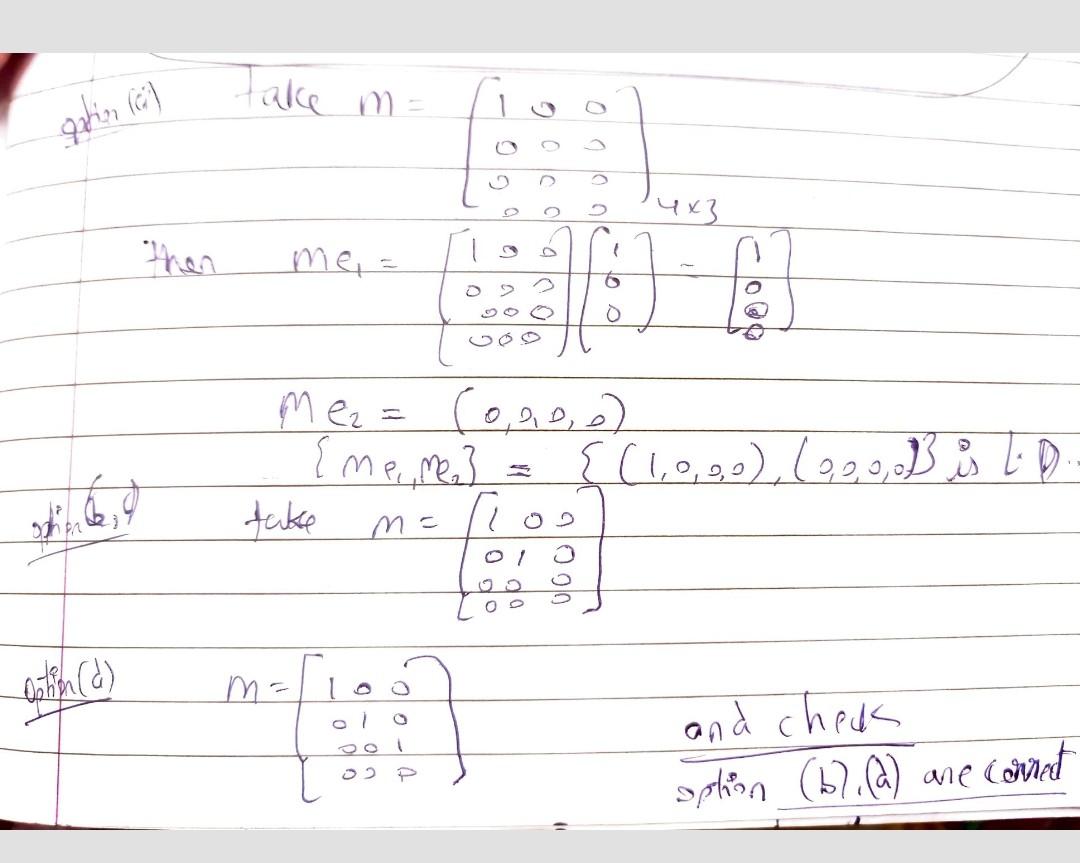 option (a) Take m = [1 0 0
0 0 0
0 0 0
0 0 0] 4×3
Then me₁ = [1 0 0
0 0 0
0 0 0
0 0 0] [1
0
0] = [1
0
0
0]
Me₂ = (0,0,0,0)
{me₁,me₂} = {(1,0,0,0),(0,0,0,0)} is L.D..
option (b,c) take m = [1 0 0
0 1 0
0 0 0
0 0 0]
option (d) m = [1 0 0
0 1 0
0 0 1
0 0 0]
and check
option (b),(d) are correct